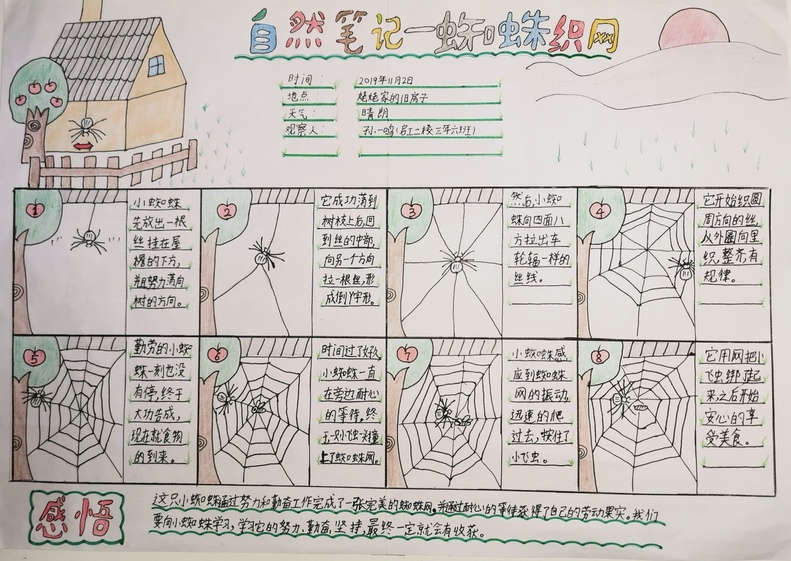 自然笔记—蜘蛛织网
时间： 2019年11月2日
地点： 姥姥家的旧房子
天气： 晴朗
观察人： 孙一鸣（三年六班）
1
小蜘蛛
先放出一根
丝挂在屋
檐的下方，
并努力荡向
树的方向。
2
它成功荡到
树枝上后,回
到丝的中部,
向另一个方向
拉一根丝,形
成倒Y字形。
3
然后,小蜘
蛛向四面八
方拉出车
轮辐一样的
丝线。
4
它开始织圆
周方向的丝,
从外圈向里
织,整齐,有
规律。
5
勤劳的小蜘
蛛一刻也没
有停,终于
大功告成，
现在就食物
的到来。
6
时间过了好久
小蜘蛛一直
在旁边耐心
的等待,终
于一只小飞虫撞
上了蜘蛛网。
7
小蜘蛛感
应到蜘蛛
网的振动,
迅速的爬
过去,按住了
小飞虫。
8
它用网把小
飞虫绑起
来,之后开始
安心的享
受美食。
感悟
这只小蜘蛛通过努力和勤奋工作完成了一张完美的蜘蛛网,并通过耐心的等待获得了自己的劳动果实。我们
要向小蜘蛛学习,学习它的努力、勤奋、坚持,最终一定就会有收获。